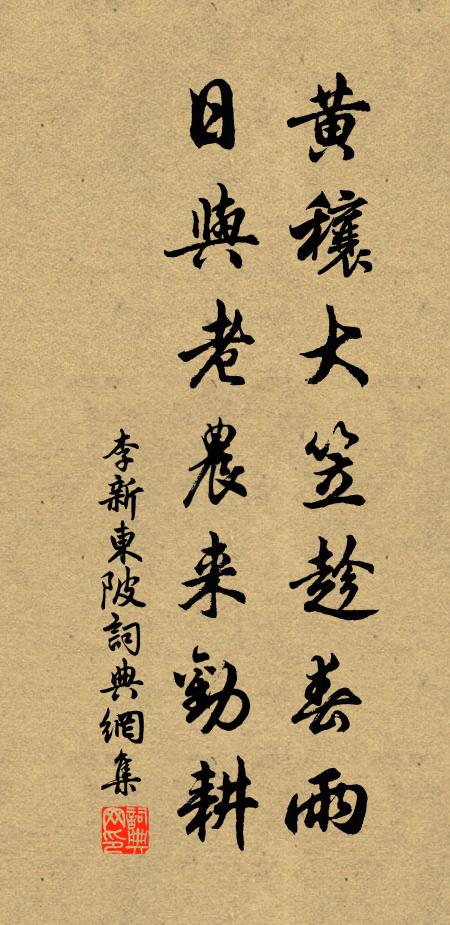 黄穰大笠趁春雨
日與老農来勸耕
李新東陂詞典網集
詞典網印